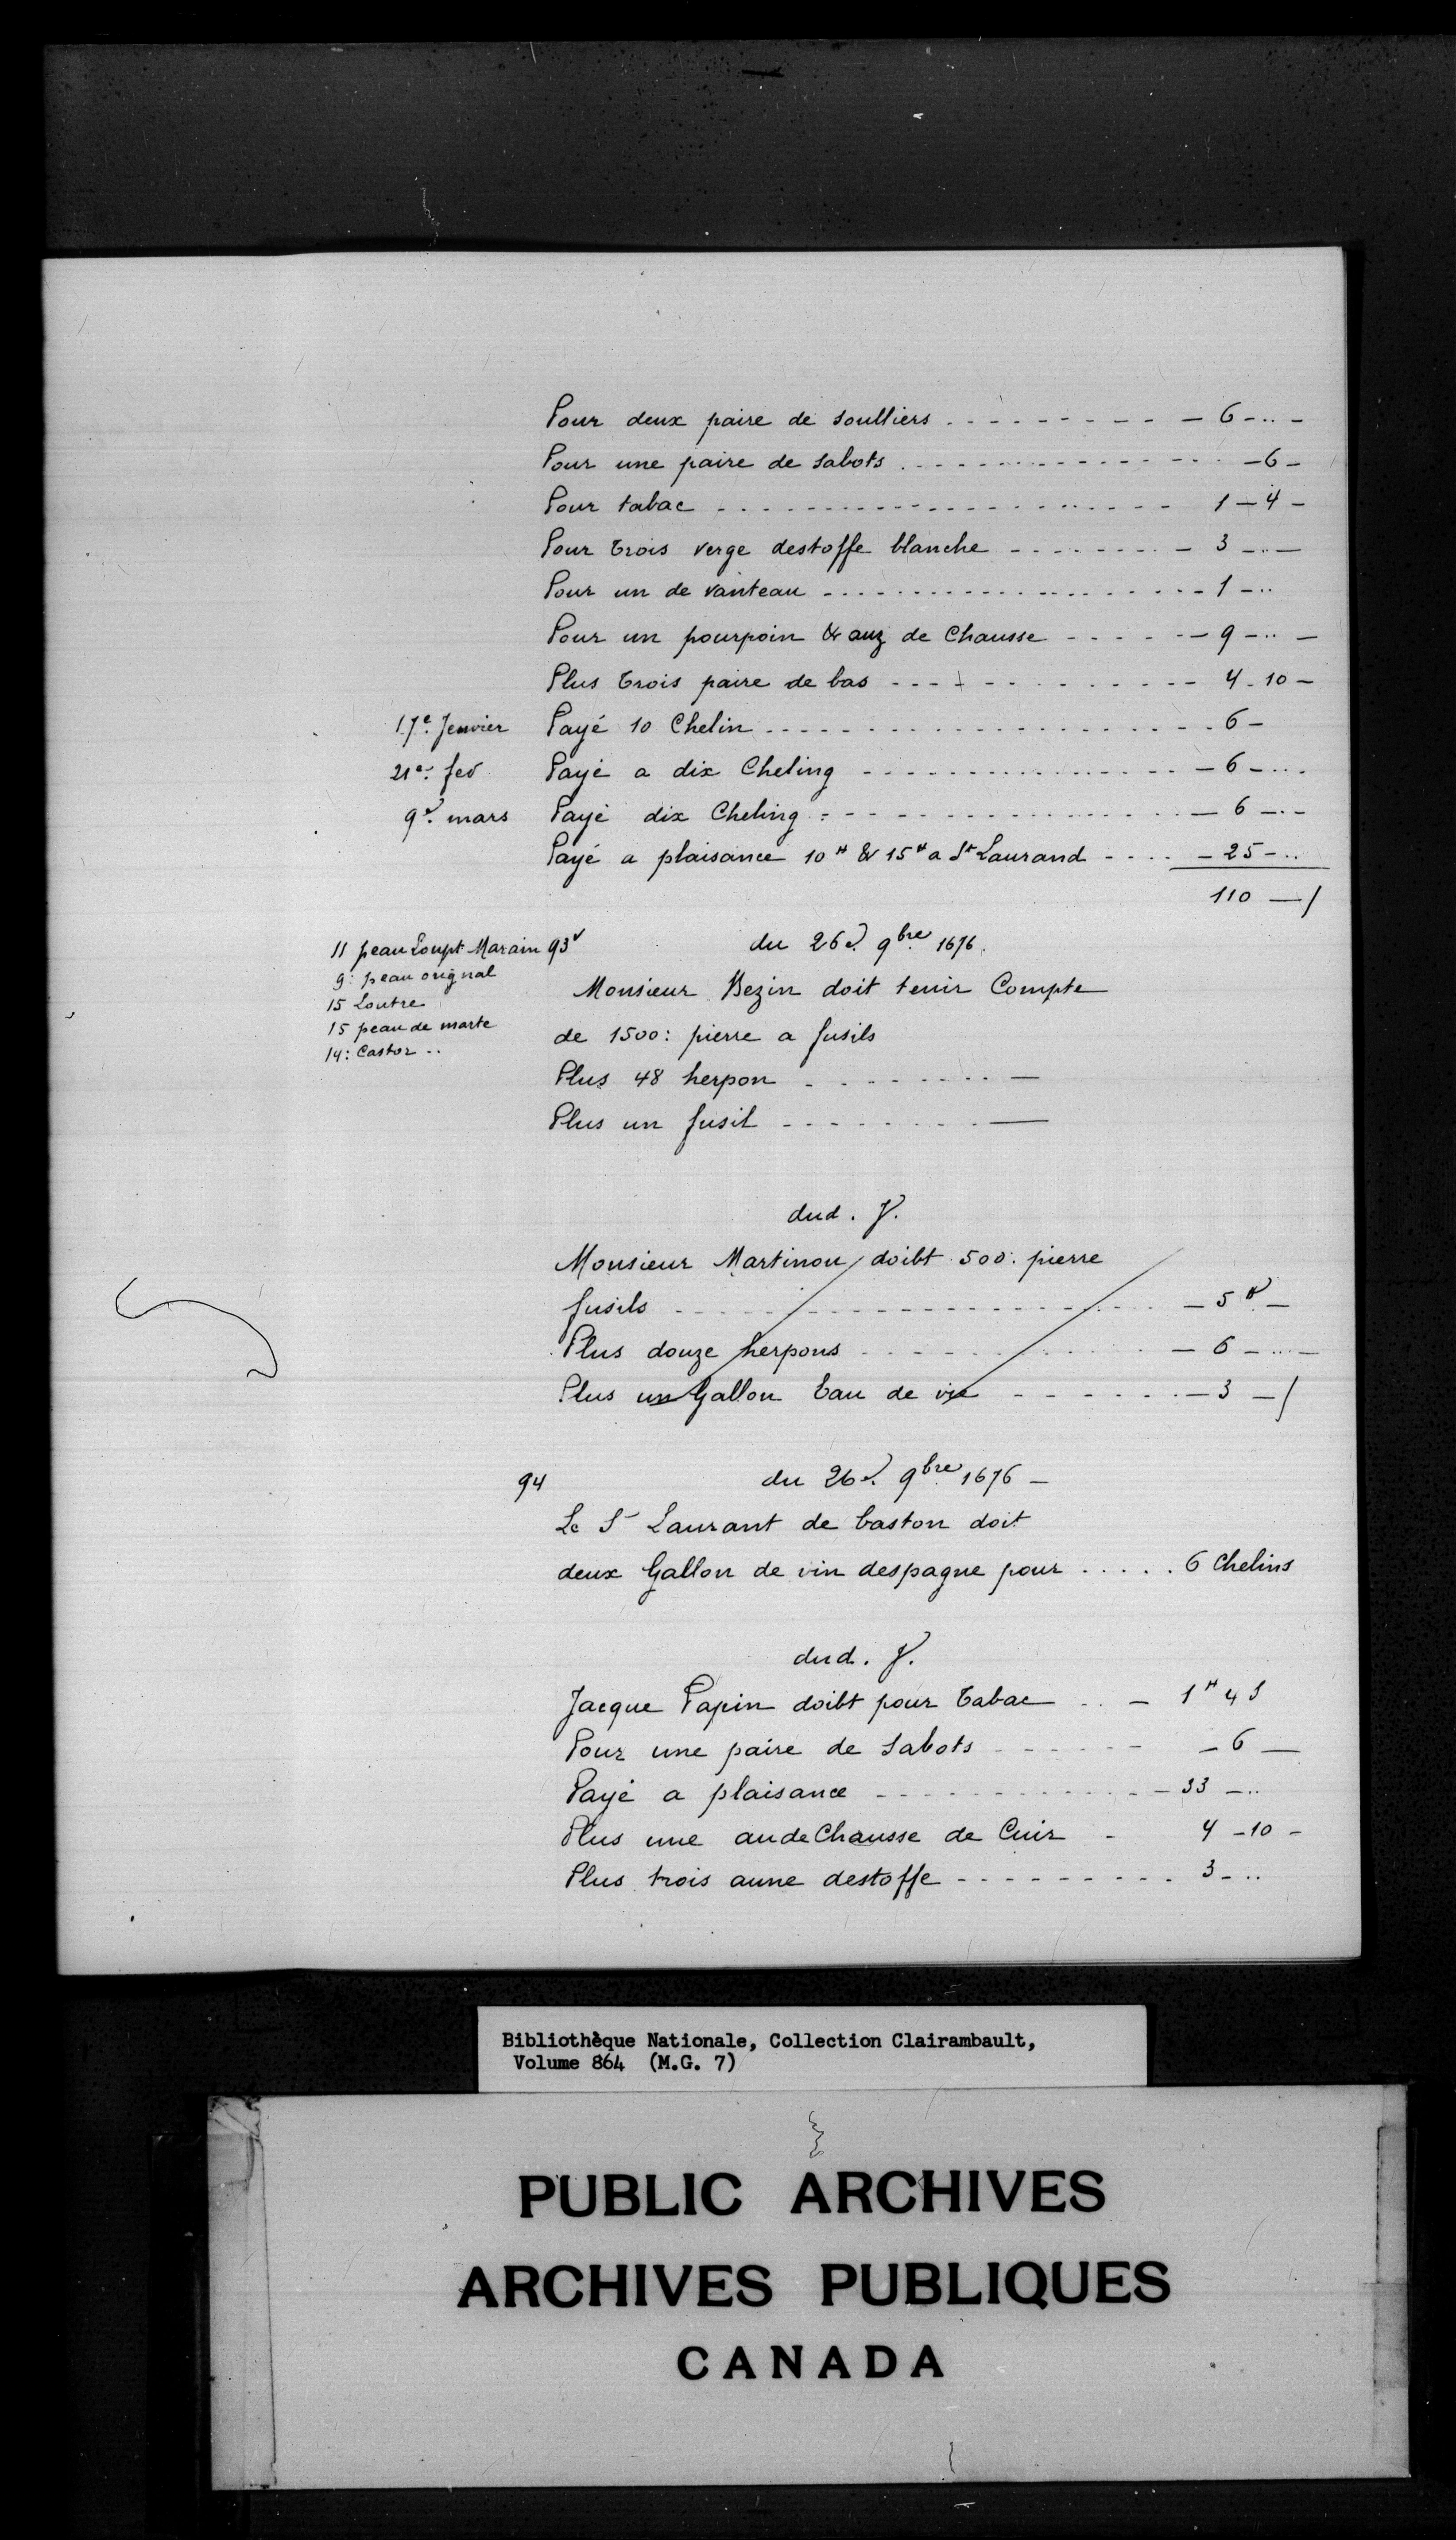 Pour deux paire de soulliers - 6 - .. -
Pour une paire de sabots - 6 -
Pour tabac 1 - 4 -
Pour trois verge destoffe blanche - 3 - .. -
Pour un de vanteau - 1 - ..
Pour un pourpoin & auz de Chausse - 9 - .. -
Plus trois paire de bas - 4 - 10 -
17e Jenvier Payé 10 Chelin - 6 -
21e: fev Payé a dix Cheling - 6 - ...
9e. mars Payé dix Cheling - 6 - .. -
Payé a plaisance 10 ₶ & 15 ₶ a St Laurand - 25 - ..
110 - /
11 peau Loupt Marain
9: peau orignal
15 Loutre
15 peau de marte
14: Castor ..
93v du 26e. 9bre 1676.
Monsieur Bezin doit tenir Compte
de 1500: pierre a fusils
Plus 48 herpon
Plus un fusil
dud. J.
Monsieur Martinon doibt 500: pierre
fusils - 5 ₶ -
Plus douze herpons - 6 - ... -
Plus un Gallon Eau de vie - 3 - /
94 du 26e. 9bre 1676 -
Le Sr Laurant de baston doit
deux Gallon de vin despagne pour ..... 6 Chelins
dud. J.
Jacque Papin doibt pour tabac .. - 1 ₶ 4 S
Pour une paire de sabots - 6 -
Payé a plaisance - 33 - ..
Plus une aude Chausse de Cuir - 4 - 10 -
Plus trois aune destoffe - 3 - ..
Bibliothèque Nationale, Collection Clairambault,
Volume 864 (M.G. 7)
PUBLIC ARCHIVES
ARCHIVES PUBLIQUES
CANADA